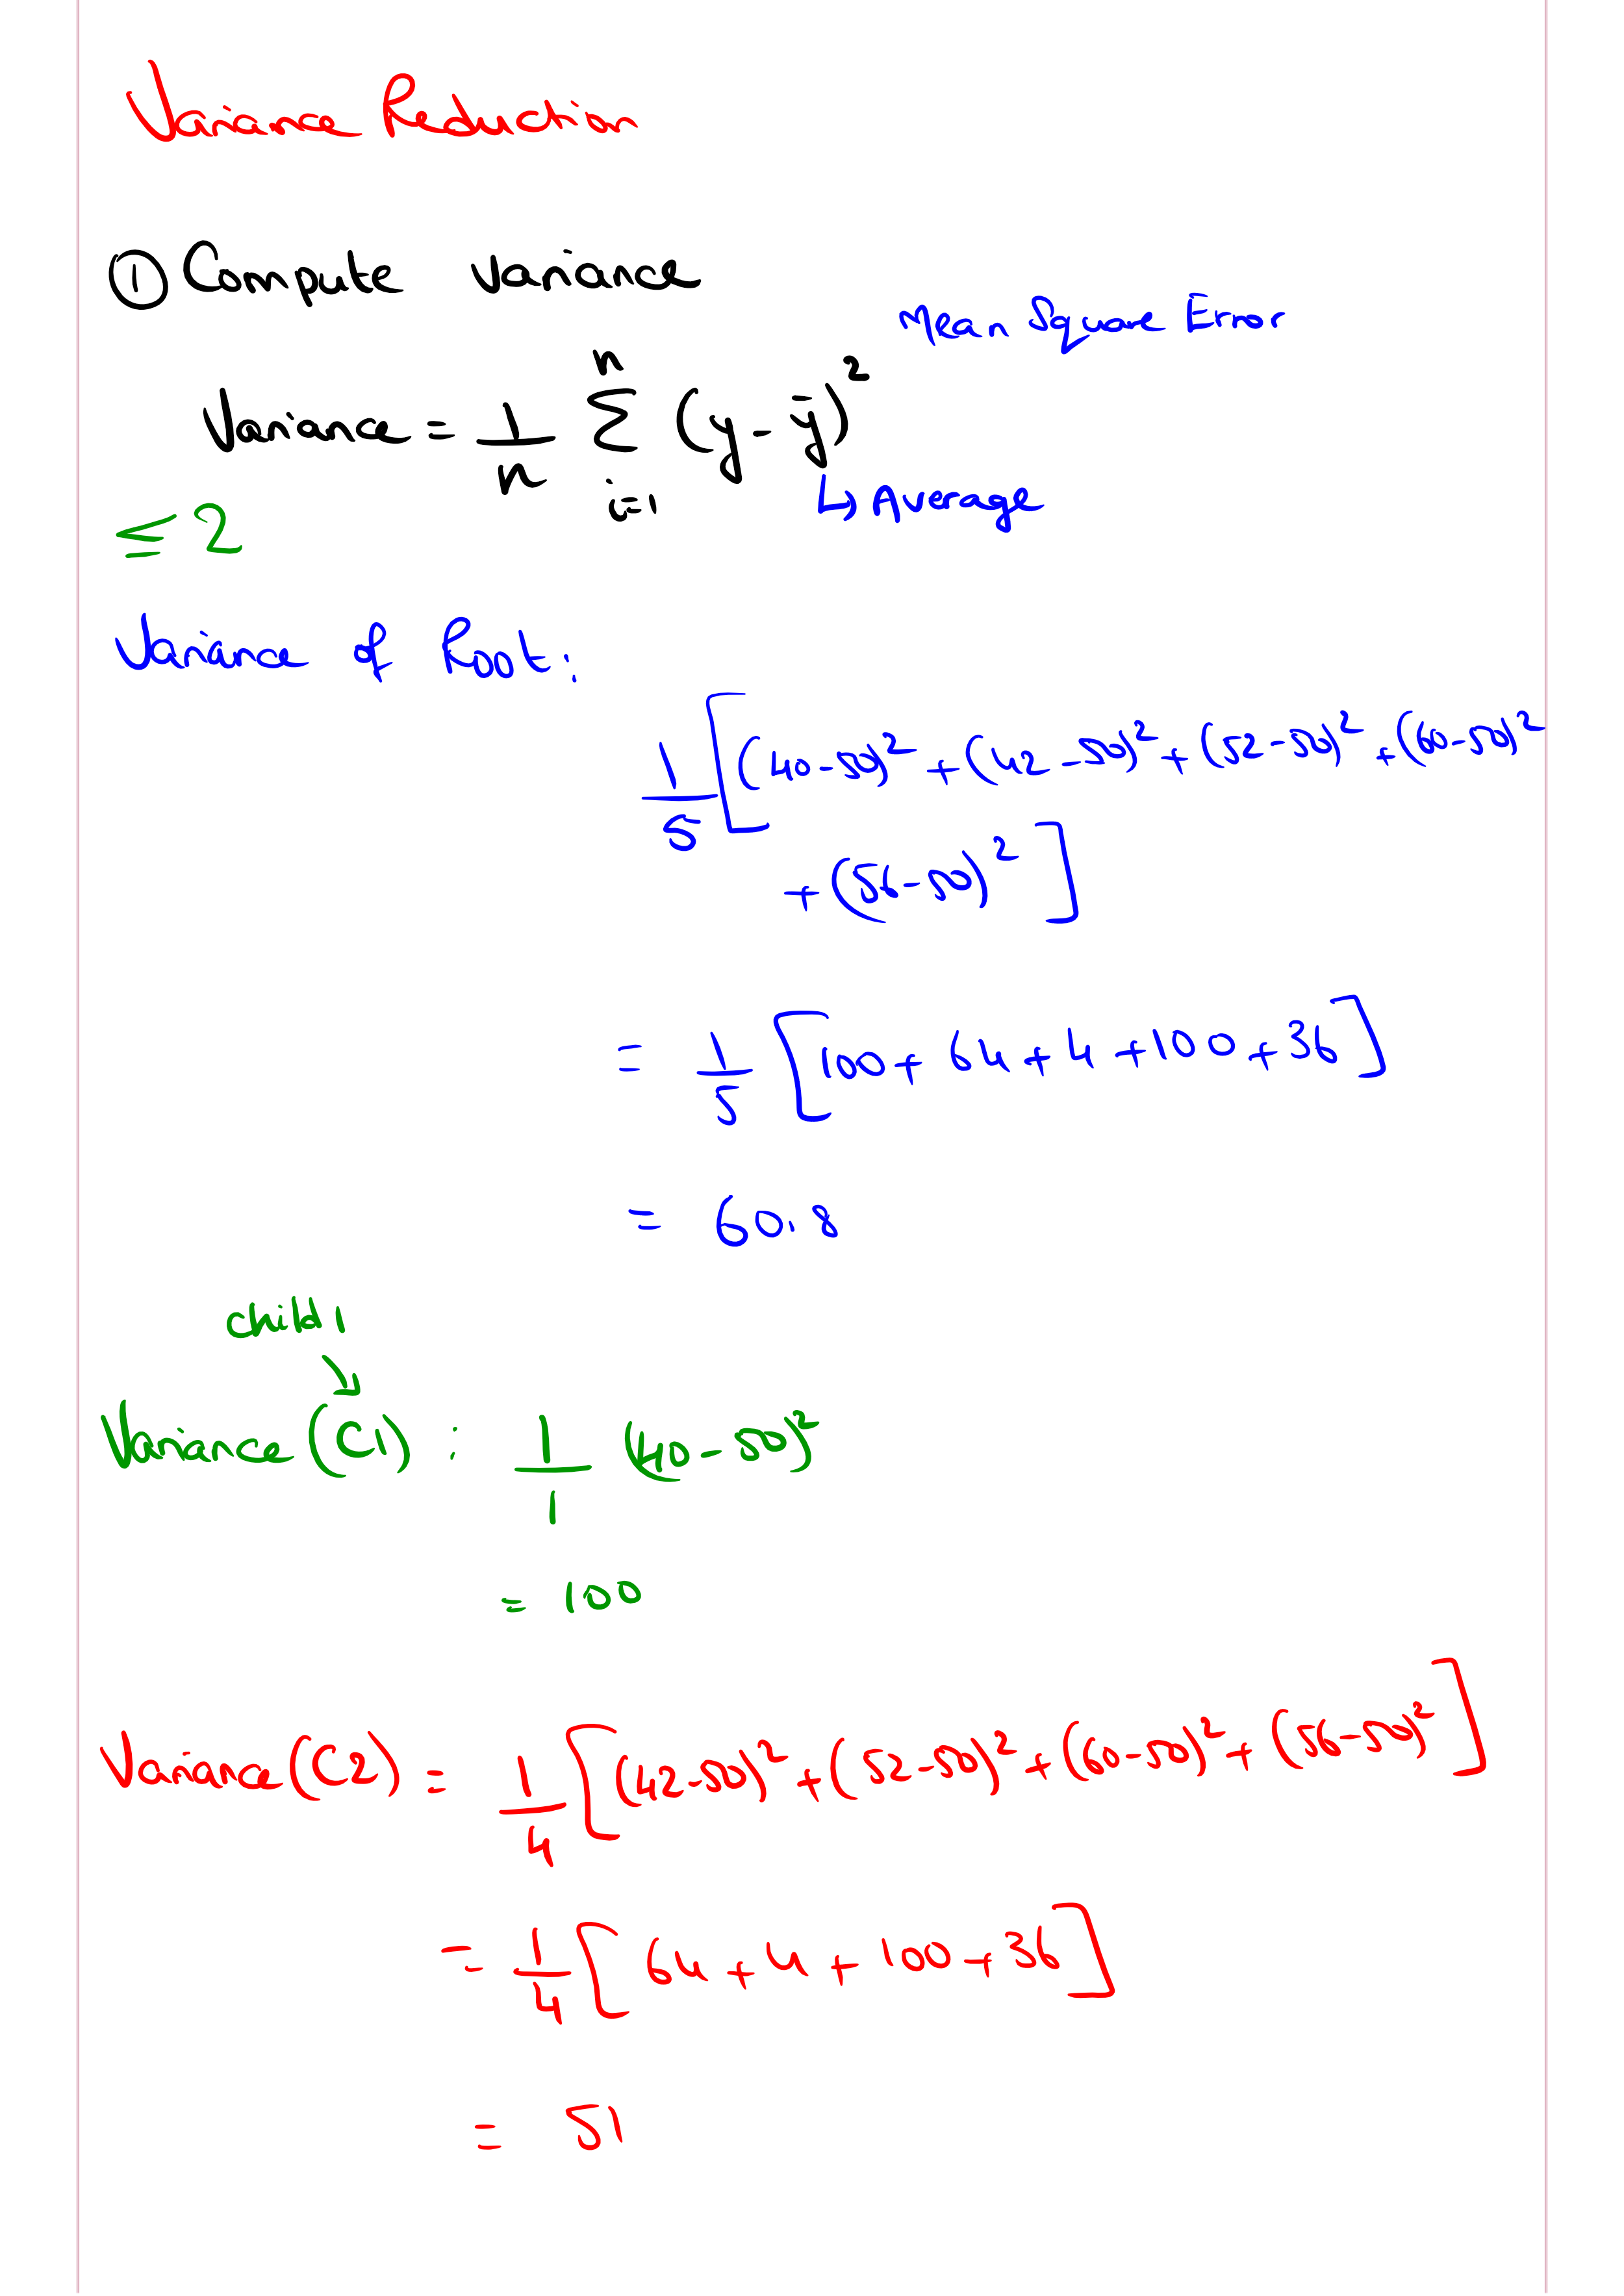 Variance Reduction
① Compute variance
Mean Square Error
Variance = 1/n Σ_{i=1}^{n} (y - ȳ)²
↳ Average
≤ 2
Variance of Root:
1/5 [(40-50)² + (42-50)² + (52-50)² + (60-50)²
+ (56-50)²]
= 1/5 [100 + 64 + 4 + 100 + 36]
= 60.8
child 1
Variance (C1) : 1/1 (40-50)²
= 100
Variance (C2) = 1/4 [(42-50)² + (52-50)² + (60-50)² + (56-50)²]
= 1/4 [64 + 4 + 100 + 36]
= 51